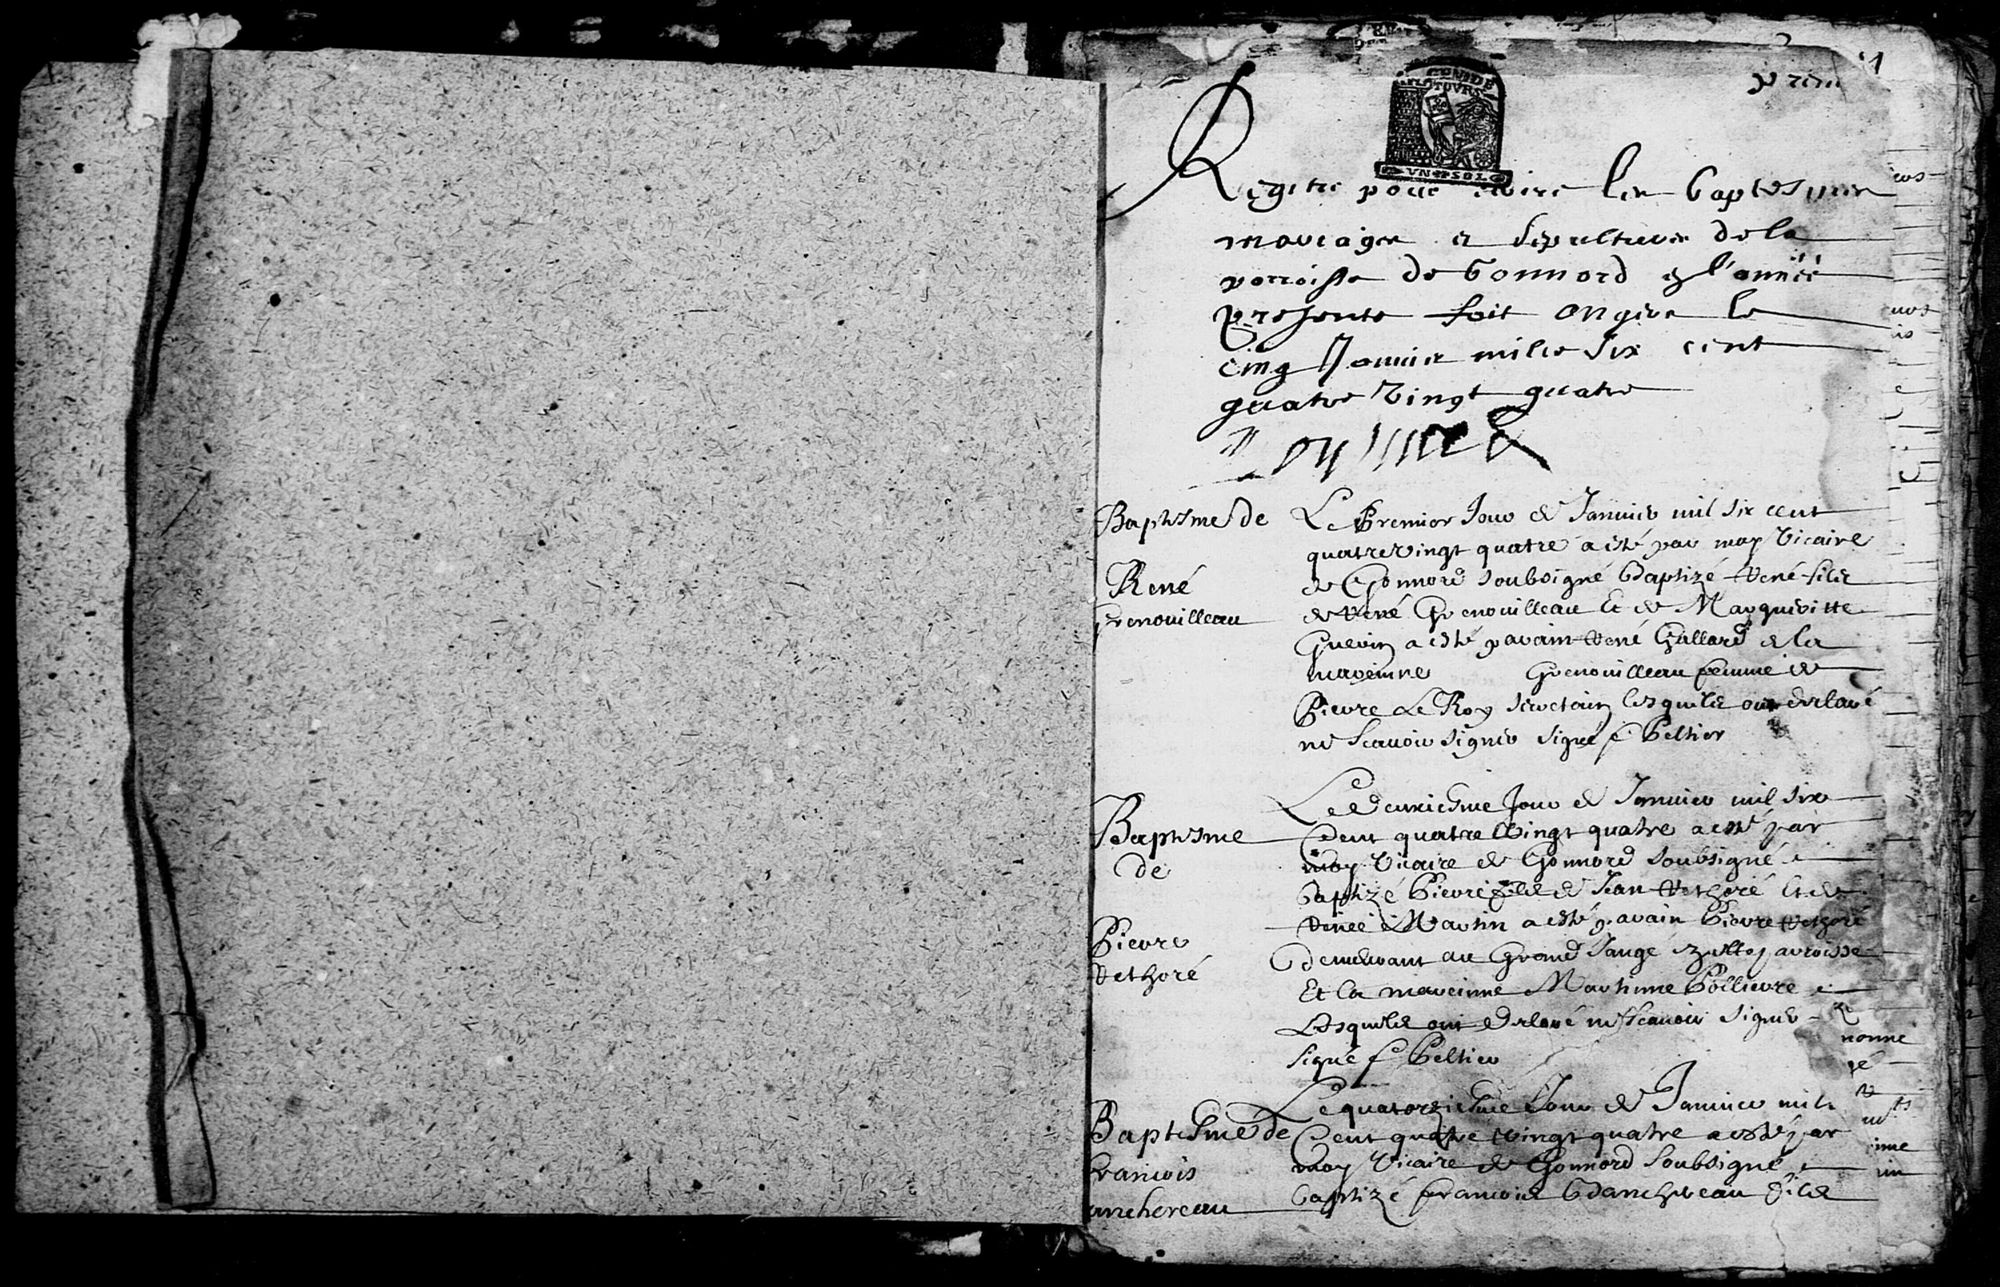 1
prem
GEN DE
TOVRS
VN SOL
Regitre pour ecrire les baptesmes
mariages et sepultures de la
parroisse de Gonnord et l'année
presente fait Angers le
cinq Janvier mille six cent
quatre vingt quatre
Baptisme de
René
Grenouilleau
Le Premier Jour de Janvier mil six cent
quatre vingt quatre a esté par moy Vicaire
de Gonnord soubsigné Baptizé René fils
de René Grenouilleau Et de Marguiritte
Guerin a esté parain René Gallard et la
mareinne Grenouilleau femme de
Pierre Le Roy secretain lesquels ont declaré
ne scavoir signer signé f Peltier
Baptisme
de
Pierre
Rethoré
Le deuxiesme Jour de Janvier mil six
Cent quatre Vingt quatre a esté par
moy Vicaire de Gonnord soubsigné
Baptizé Pierre fils de Jean Rethoré Et de
Renée Martin a esté parain Pierre Rethoré
demeurant au Grand
Et la mareinne Marthinne Pollievre
Lesquels ont declaré ne scavoir signer
signé f Peltier
Baptisme de
francois
anchereau
Le quatorziesme Jour de Janvier mil
Cent quatre Vingt quatre a esté par
moy Vicaire de Gonnord soubsigné
baptizé francois Blanchereau fils